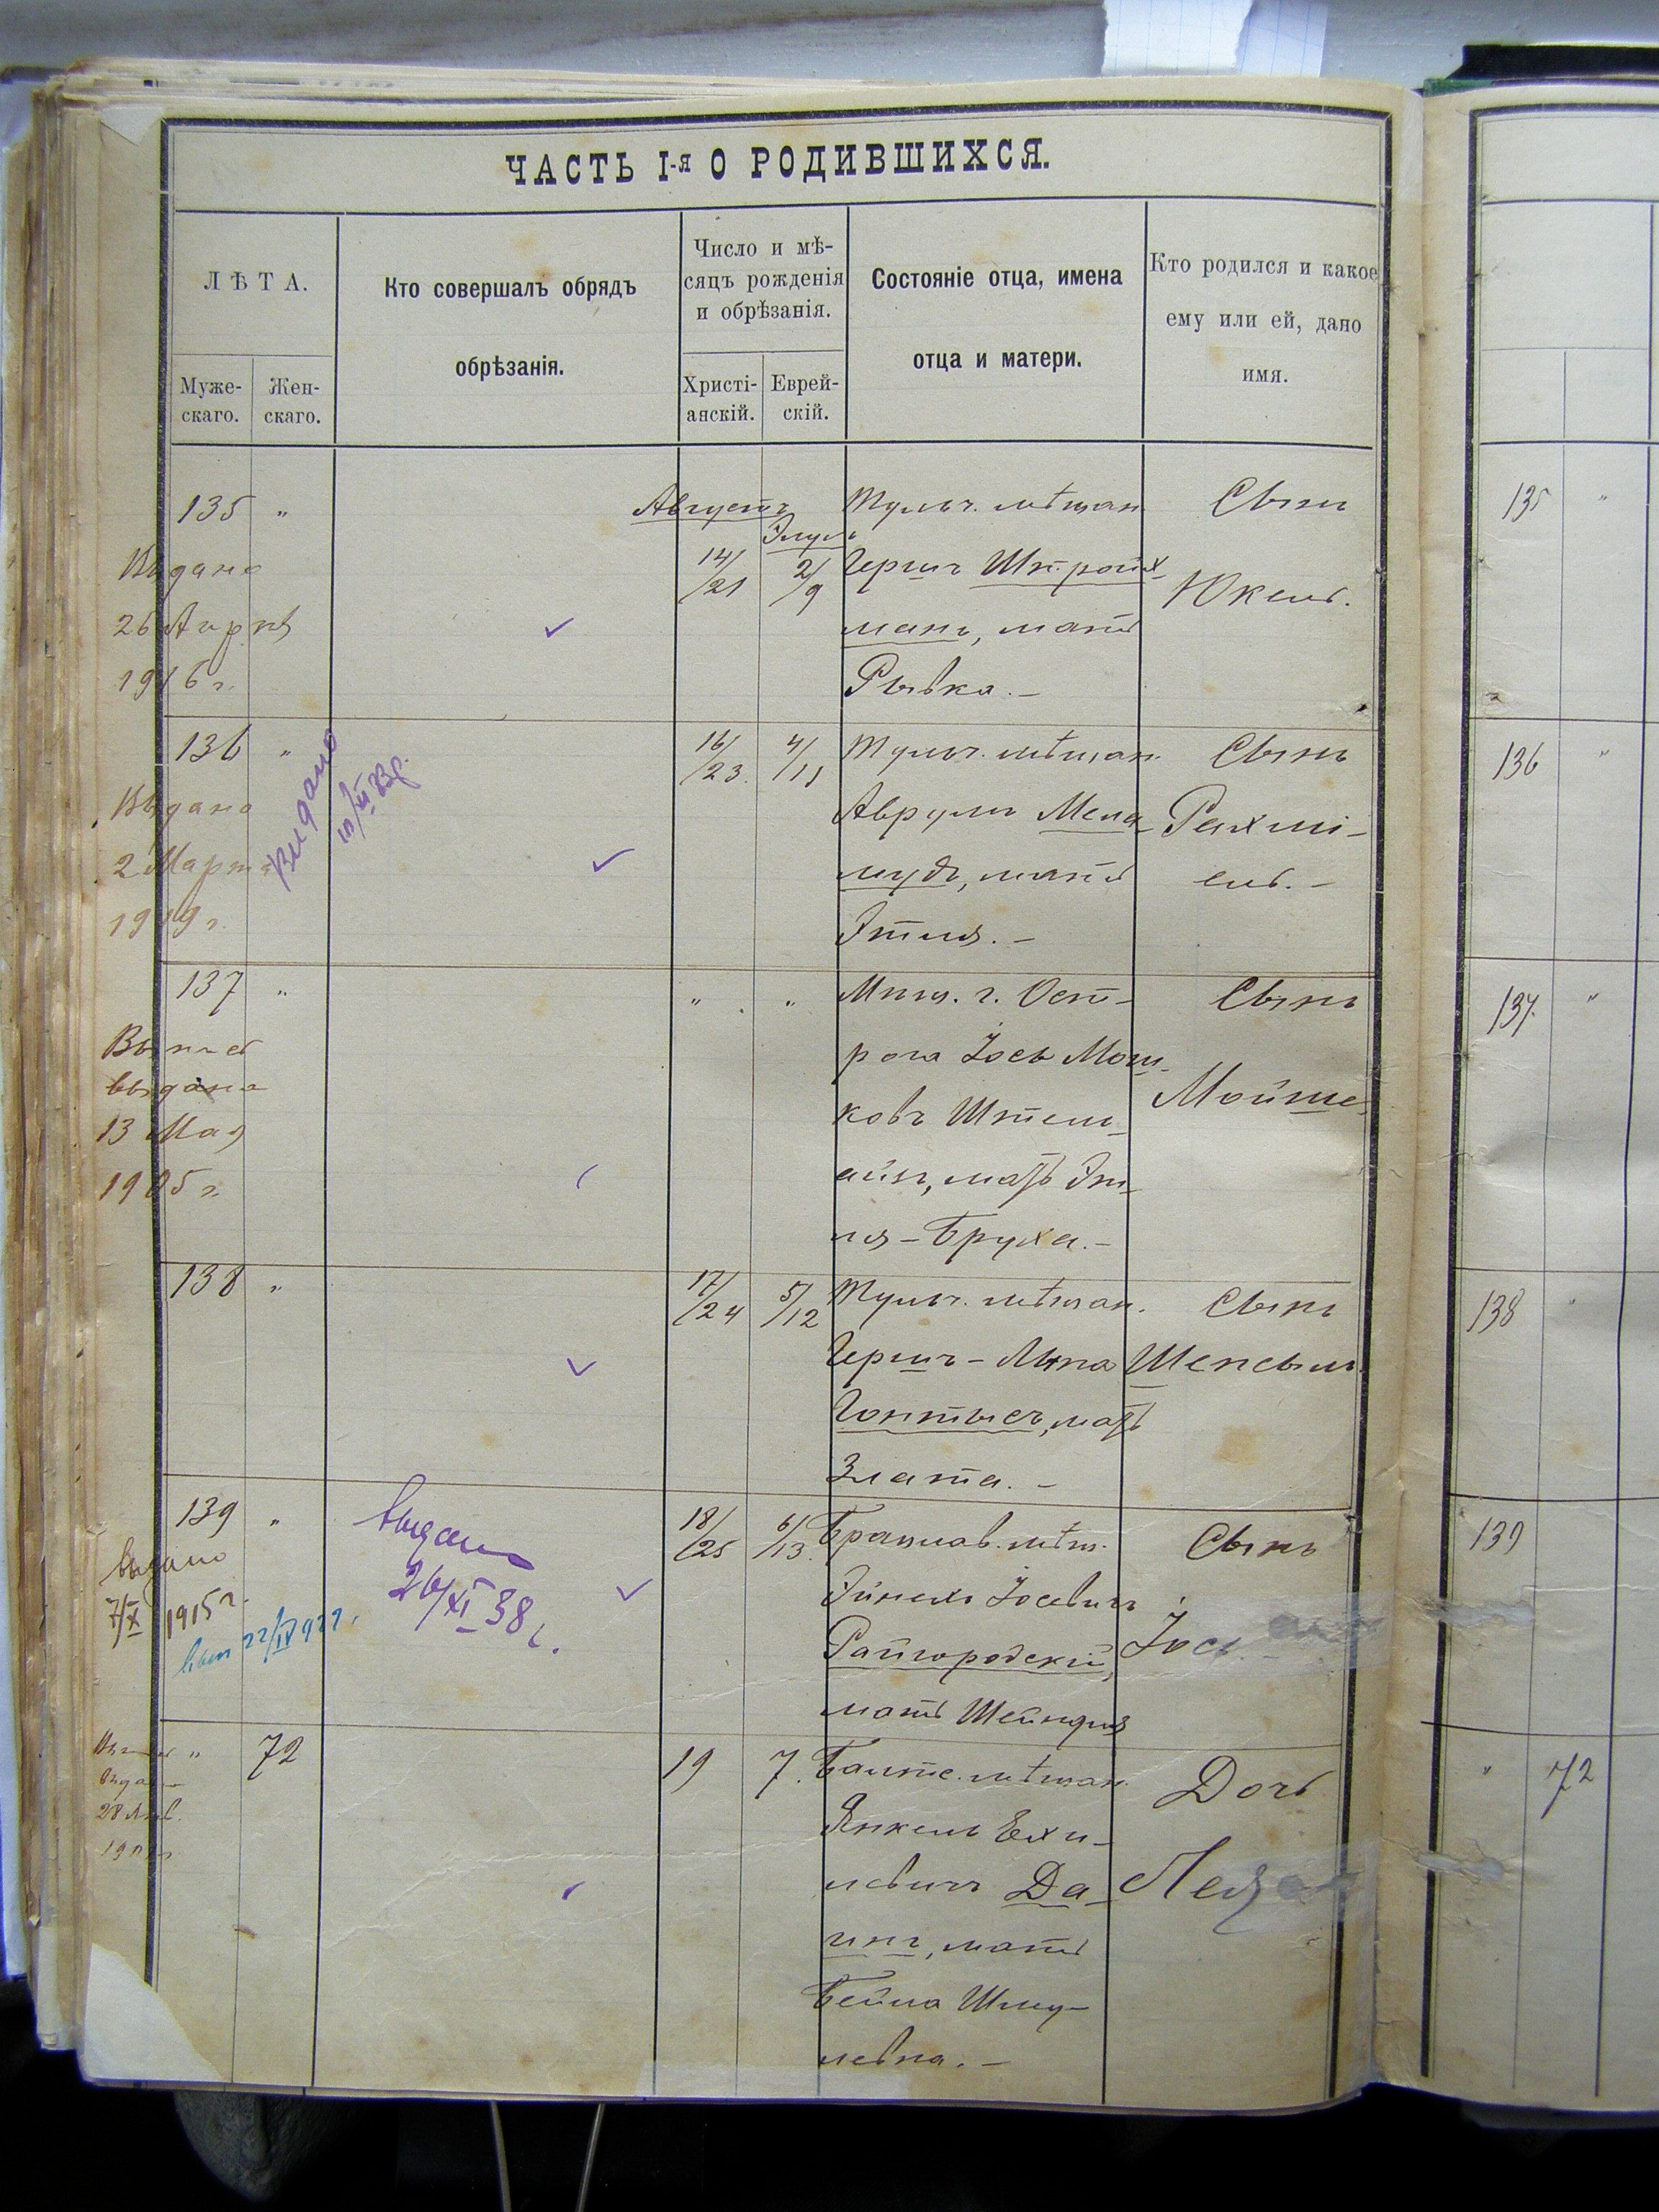 ЧАСТЬ I-я О РОДИВШИХСЯ.
ЛѢТА.
Муже-
скаго.
Жен-
скаго.
Кто совершалъ обрядъ
обрѣзанія.
Число и мѣ-
сяцъ рожденія
и обрѣзанія.
Христі-
анскій.
Еврей-
скій.
Состояніе отца, имена
отца и матери.
Кто родился и какое
ему или ей, дано
имя.
135 "
Выдано
26
1916 г.
Августъ
Элулъ
14/21 2/9
Тульч. мѣщан.
Гершъ
манъ, мать
Рывка. –
Сынъ
Юкель.
136 "
Выдано
2 Марта
1919 г.
Выдано
16/23. 4/11
Тульч. мѣщан.
Аврумъ Мела-
мудъ, мать
Этля. –
Сынъ
Рахми-
ель. –
137 "
выдана
13 Мая
1905 г.
" "
Мѣщ. г. Ост-
рога Іось Мош-
ковъ Штель-
айнъ, мать Эт-
ля – Бруха. –
Сынъ
Мойше.
138 "
17/24 5/12
Тульч. мѣщан.
Гершъ –
мать
Злата. –
Сынъ
139 "
Выдано
7/X 1915 г.
выдано
26/XI 38 г.
18/25 6/13.
Брацлав. мѣщ.
Іосевичъ
Райгородскій,
мать Шейндля
Сынъ
Іось. –
" 72
28 Янв.
19 7.
Балтс. мѣщан.
Янкель Ехи-
левичъ Да-
мать
Бейла Шму-
левна. –
Дочь
135 "
136 "
137. "
138 "
139
" 72